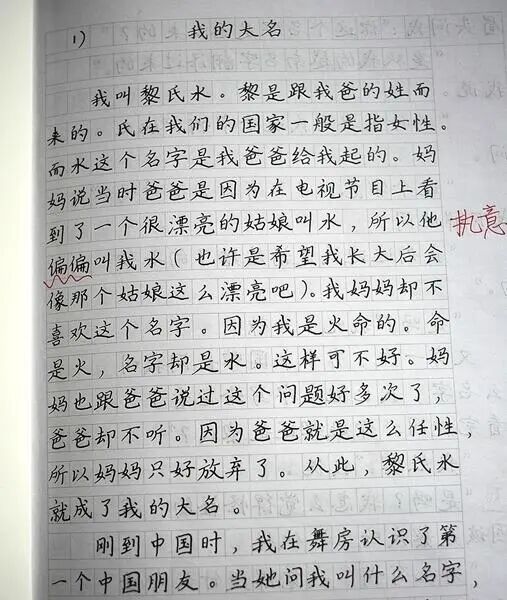 1) 我的大名
我叫黎氏水。黎是跟我爸的姓而
来的。氏在我们的国家一般是指女性。
而水这个名字是我爸爸给我起的。妈
妈说当时爸爸是因为在电视节目上看
到了一个很漂亮的姑娘叫水，所以他 执意
偏偏叫我水（也许是希望我长大后会
像那个姑娘这么漂亮吧）。我妈妈却不
喜欢这个名字。因为我是火命的。命
是火，名字却是水。这样可不好。妈
妈也跟爸爸说过这个问题好多次了，
爸爸却不听。因为爸爸就是这么任性，
所以妈妈只好放弃了。从此，黎氏水
就成了我的大名。
刚到中国时，我在舞房认识了第
一个中国朋友。当她问我叫什么名字，